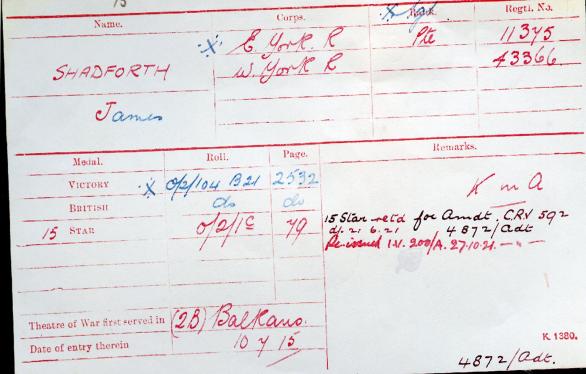 Name. Corps. Rank. Regtl. No.
E. York. R Pte 11375
SHADFORTH W. York R 43366
James
Medal. Roll. Page. Remarks.
VICTORY O/2/104 B21 2532
BRITISH do do
K m A
15 STAR O/2/1C 79
15 Star retd for Amdt. CRV 592
d/. 21.6.21 4872/Adt
Re-issued I.V. 200/A. 27.10.21.
Theatre of War first served in (2B) Balkans.
Date of entry therein 10 7 15
K 1380.
4872/Adt.